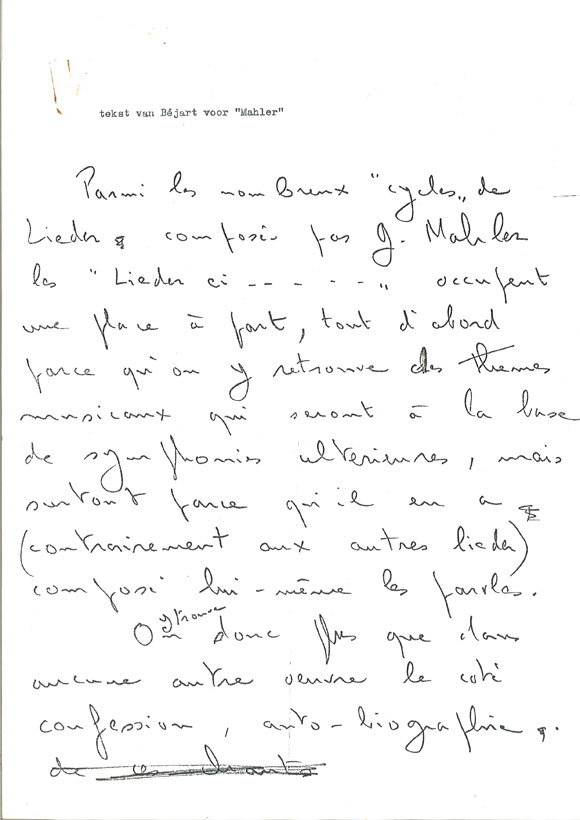 tekst van Béjart voor "Mahler"
Parmi les nombreux "cycles" de
Lieder composés par G. Mahler
les "Lieder ei - - - - -" occupent
une place à part, tout d'abord
parce qu'on y retrouve des themes
musicaux qui seront à la base
de symphonies ulterieures, mais
surtout parce qu'il en a
(contrairement aux autres lieder)
composé lui-même les paroles.
On y trouve donc plus que dans
aucune autre oeuvre le coté
confession, auto-biographie.
de ces chants